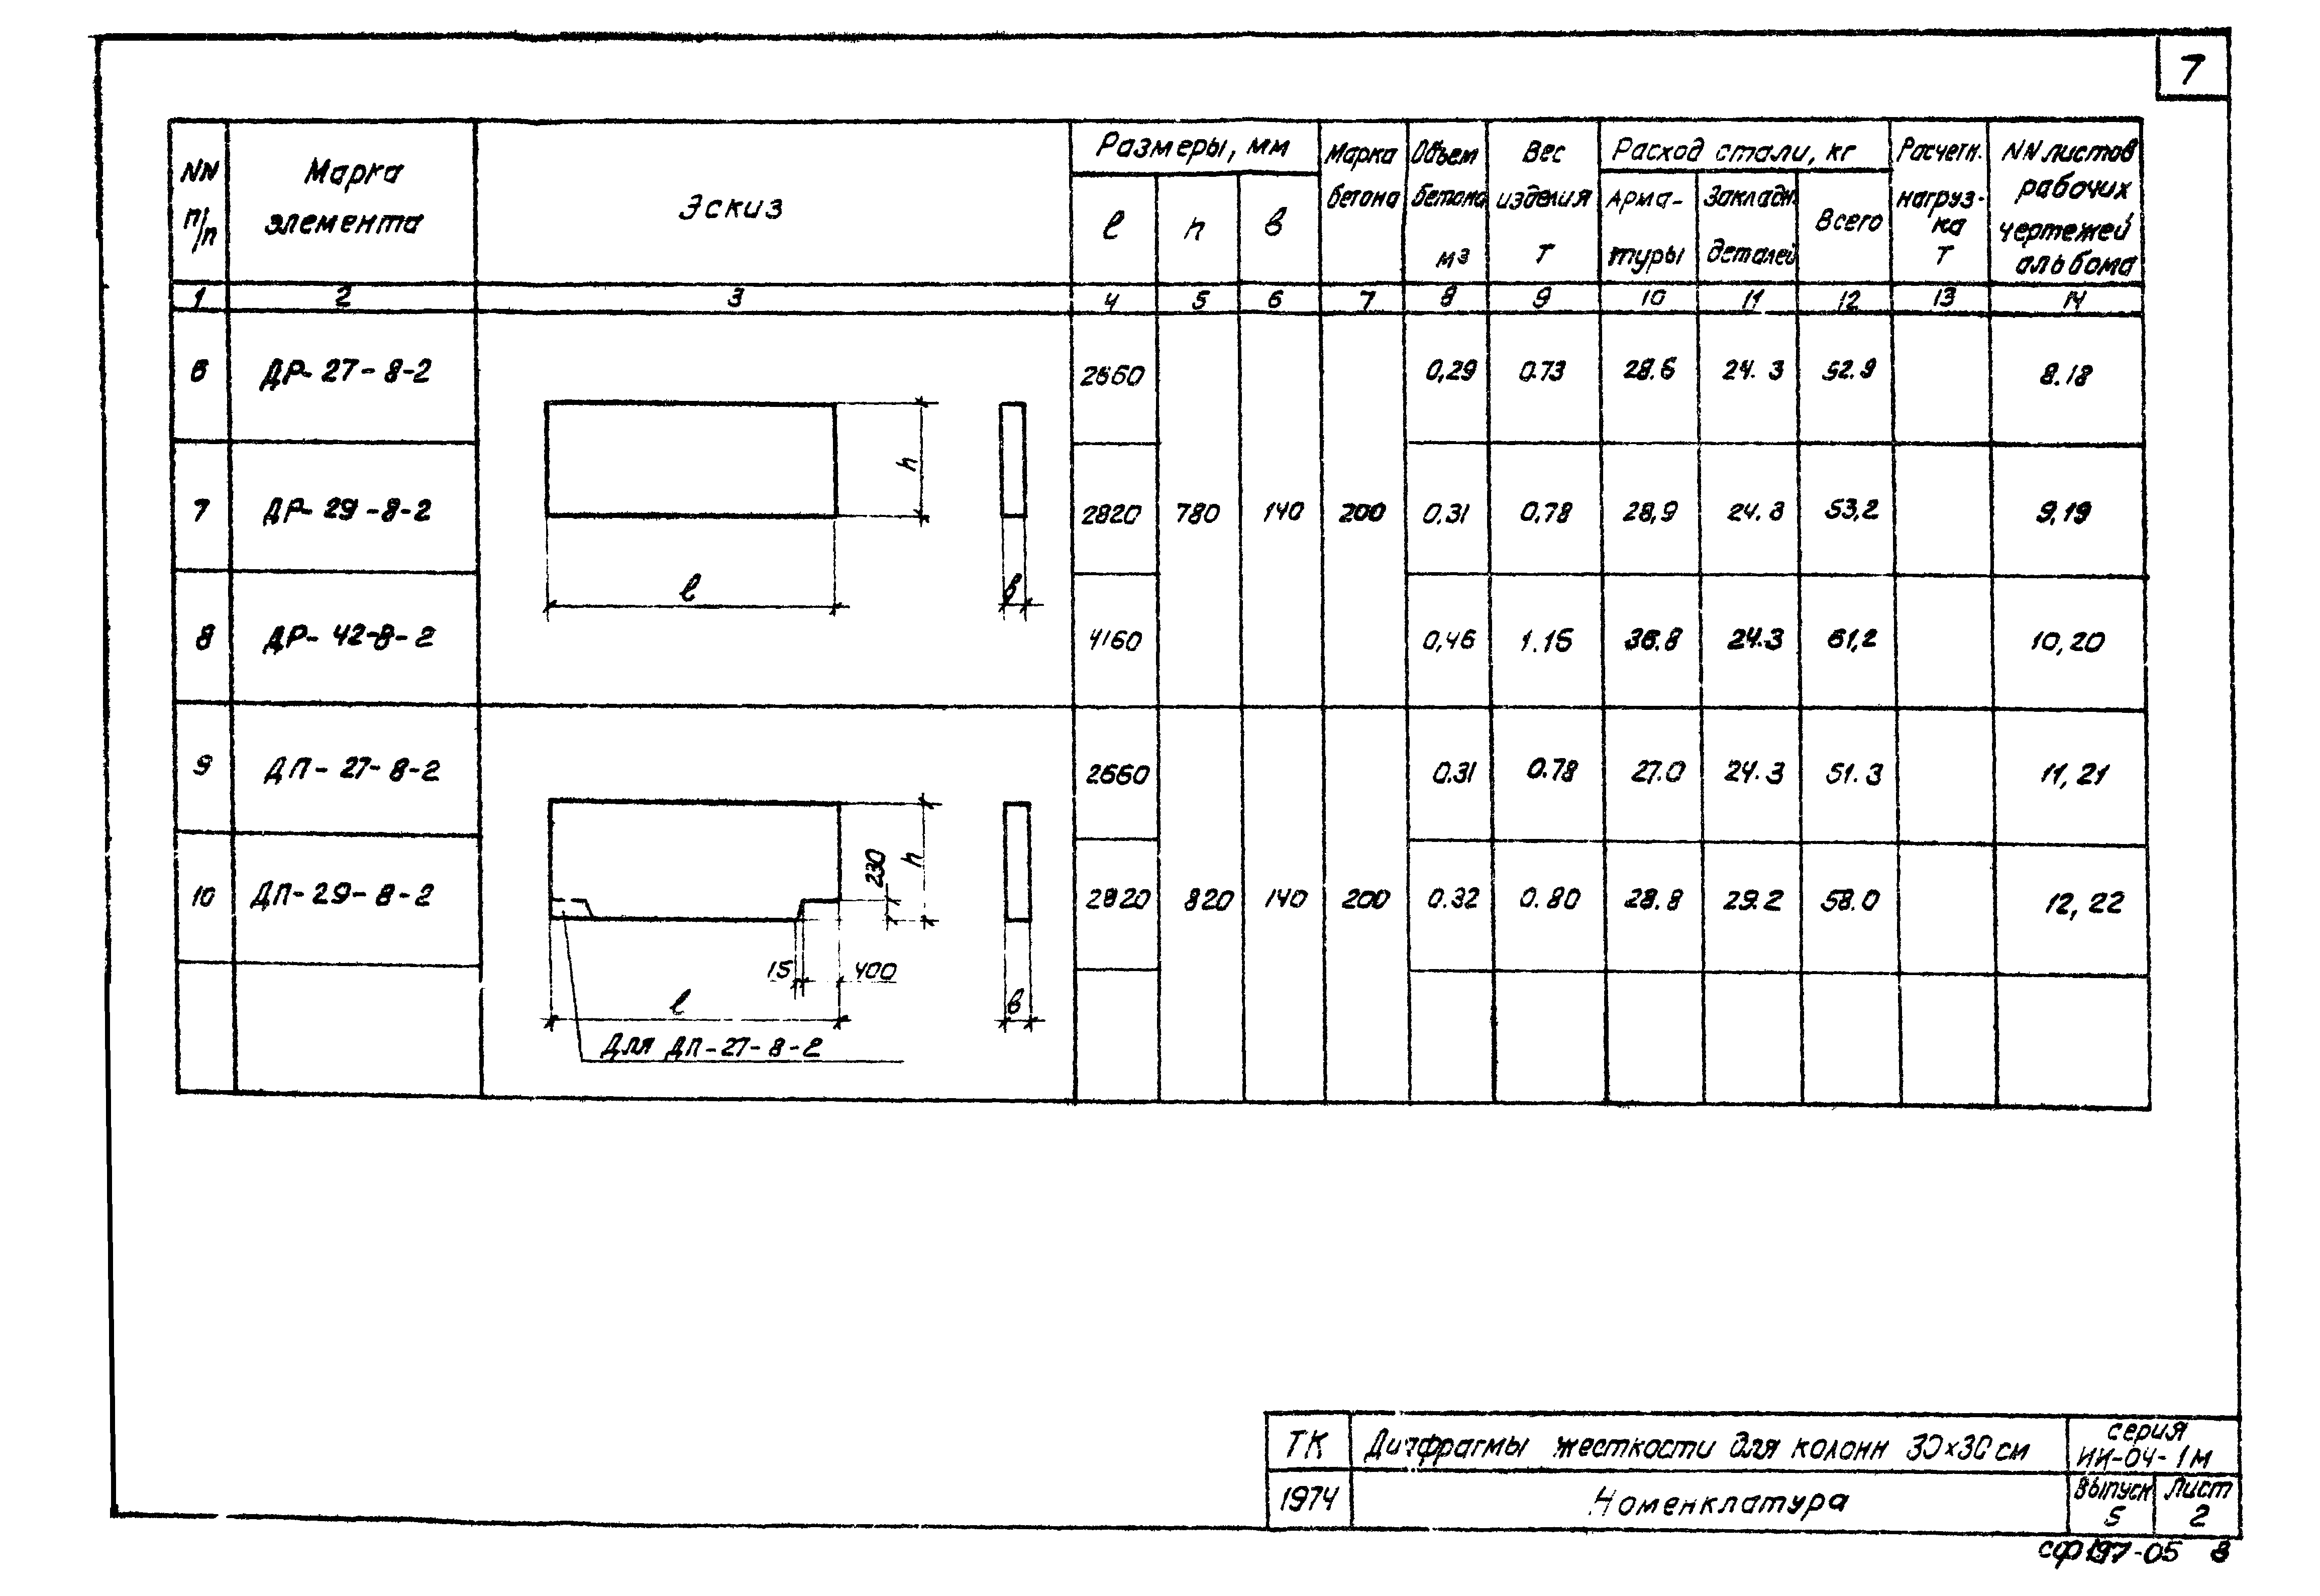 7
NN п/п
Марка элемента
Эскиз
Размеры, мм
l h в
Марка бетона
Объем бетона м3
Вес изделия Т
Расход стали, кг
Арма-туры
Закладн. деталей
Всего
Расчетн. нагруз-ка Т
NN листов рабочих чертежей альбома
1 2 3 4 5 6 7 8 9 10 11 12 13 14
6 ДР-27-8-2 2660 0,29 0.73 28.6 24.3 52.9 8.18
7 ДР-29-8-2 2820 780 140 200 0.31 0,78 28,9 24.3 53,2 9,19
8 ДР-42-8-2 4160 0,46 1.15 36.8 24.3 61,2 10,20
h
l
в
9 ДП-27-8-2 2660 0.31 0.78 27.0 24.3 51.3 11,21
10 ДП-29-8-2 2820 820 140 200 0.32 0.80 28.8 29.2 58.0 12,22
230
h
15
400
l
в
Для ДП-27-8-2
ТК Диафрагмы жесткости для колонн 30×30 см
серия
ИИ-04-1м
1974 Номенклатура
Выпуск 5
Лист 2
сф197-05 8